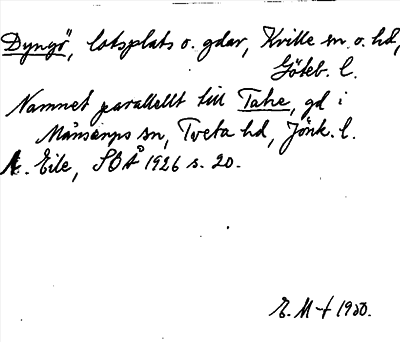 Dyngö, lotsplats o. gdar, Kville sn o. hd,
Göteb. l.
Namnet parallellt till Tahe, gd i
Månsarps sn, Tveta hd, Jönk. l.
A. Eile, SOÅ 1926 s. 20.
E. M-t 1950.